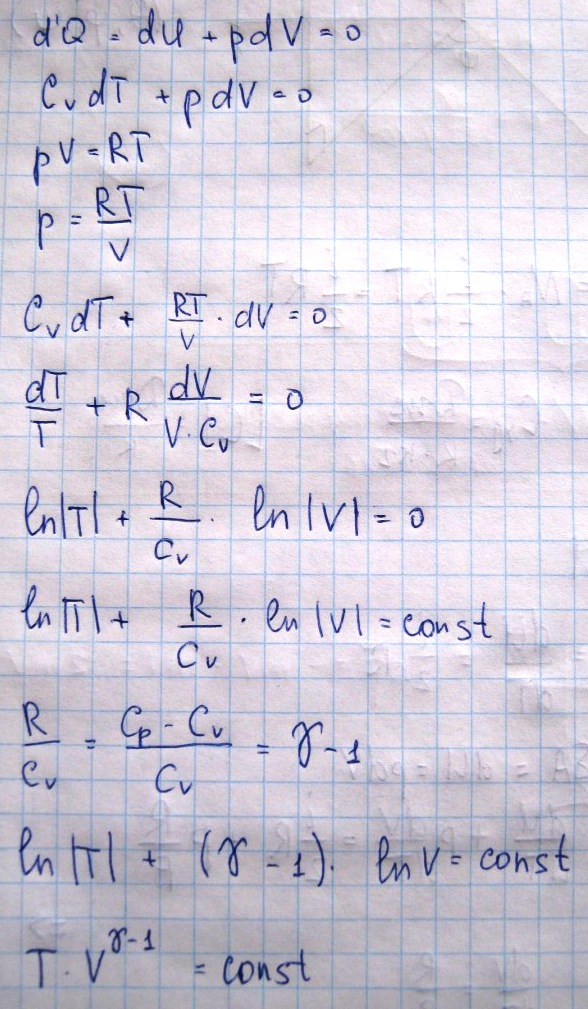 d'Q = dU + pdV = 0
C_v dT + p dV = 0
pV = RT
p = RT/V
C_v dT + RT/V · dV = 0
dT/T + R dV/(V · C_v) = 0
ln|T| + R/C_v · ln|V| = 0
ln|T| + R/C_v · ln|V| = const
R/C_v = (C_p - C_v)/C_v = γ - 1
ln|T| + (γ - 1) · ln V = const
T · V^(γ-1) = const